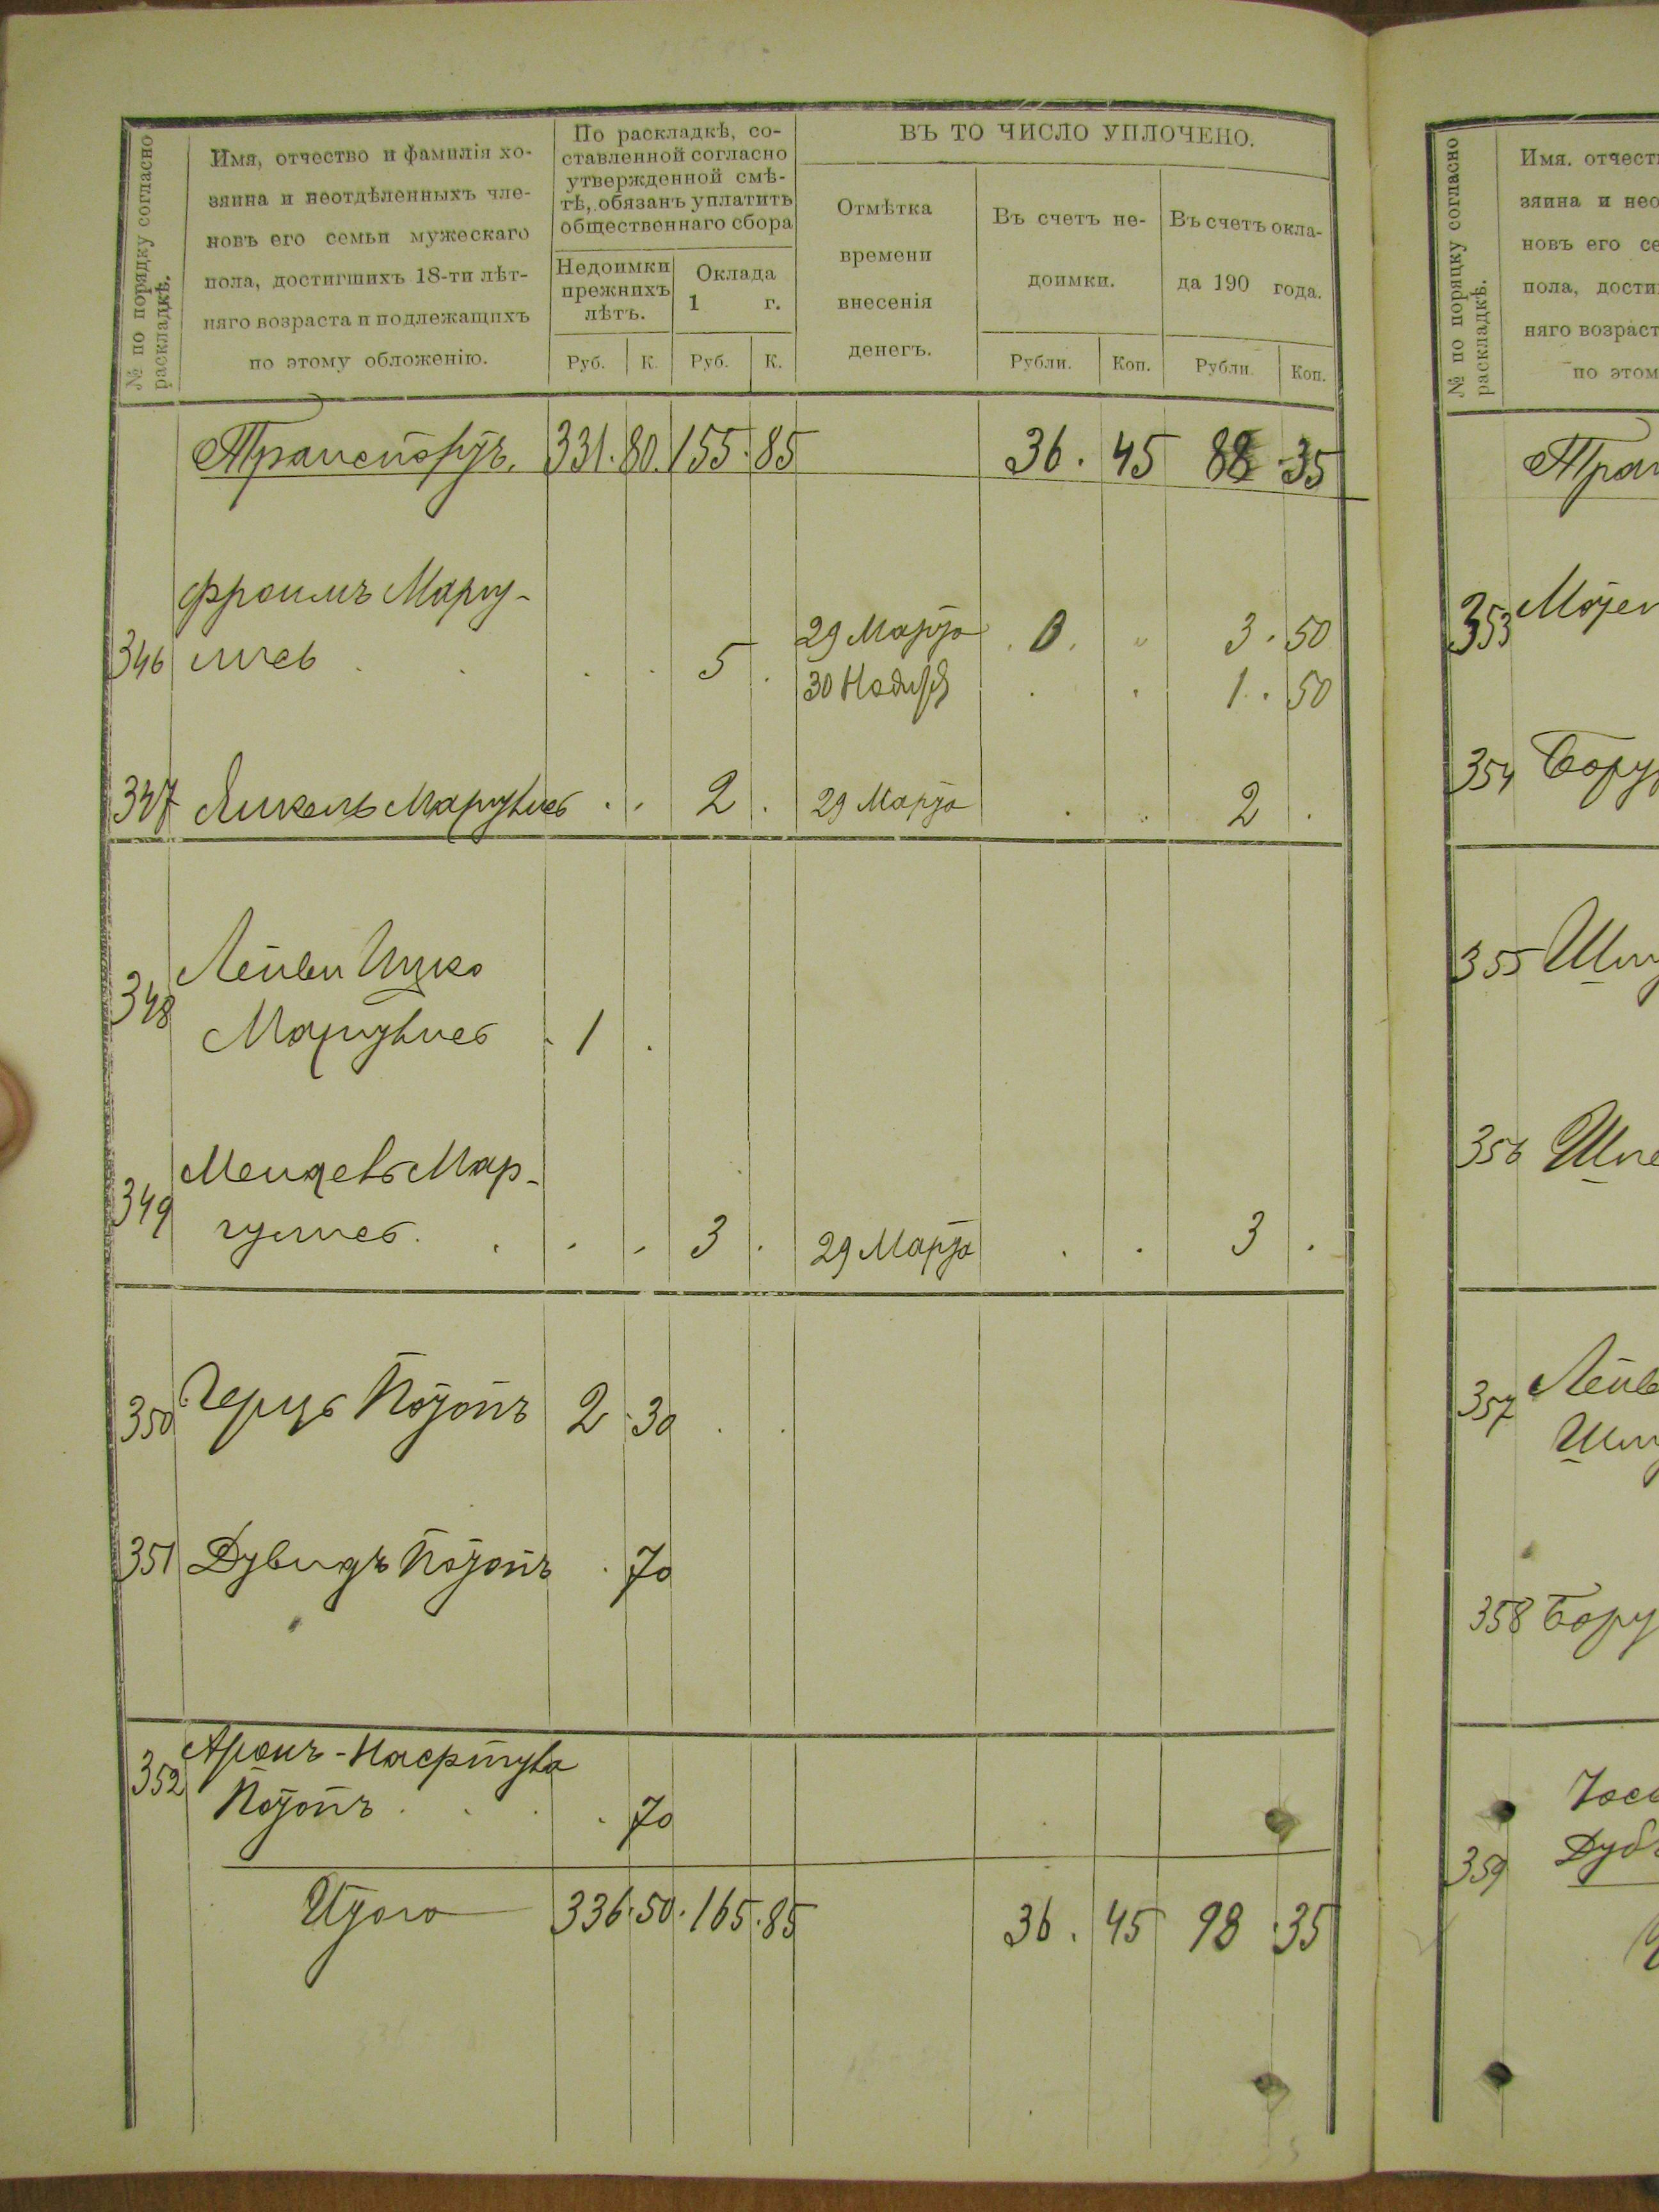 № по порядку согласно
раскладкѣ.
Имя, отчество и фамилія хо-
зяина и неотдѣленныхъ чле-
новъ его семьи мужескаго
пола, достигшихъ 18-ти лѣт-
няго возраста и подлежащихъ
по этому обложенію.
По раскладкѣ, со-
ставленной согласно
утвержденной смѣ-
тѣ, обязанъ уплатить
общественнаго сбора
Недоимки
прежнихъ
лѣтъ.
Оклада
1 г.
Руб. К. Руб. К.
ВЪ ТО ЧИСЛО УПЛОЧЕНО.
Отмѣтка
времени
внесенія
денегъ.
Въ счетъ не-
доимки.
Въ счетъ окла-
да 190 года.
Рубли. Коп. Рубли. Коп.
Транспортъ. 331. 80. 155. 85 36. 45 88 35
Фроимъ Маргу-
346 лисъ 5 29 Марта 3. 50
30 Ноября 1. 50
347 Янкель Маргулисъ 2 29 Марта 2
348 Лейви Ицко
Маргулисъ 1
349 Мендель Мар-
гулисъ. 3 29 Марта 3
350 Герцъ Потопъ 2 30
351 Дувидъ Потопъ 70
352 Аронъ-
Потопъ 70
Итого 336. 50. 165. 85 36. 45 98 35
№ по порядку согласно
раскладкѣ.
Имя. отчест
зяина и нео
новъ его се
пола, дости
няго возраст
по этом
Тран
353
354 Бору
355 Шму
356
357 Лейв
Шму
358 Бору
359